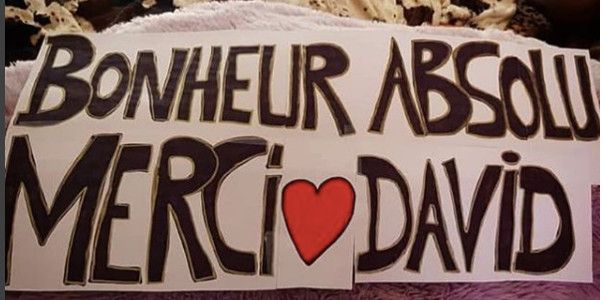 BONHEUR ABSOLU
MERCi ❤ DAViD